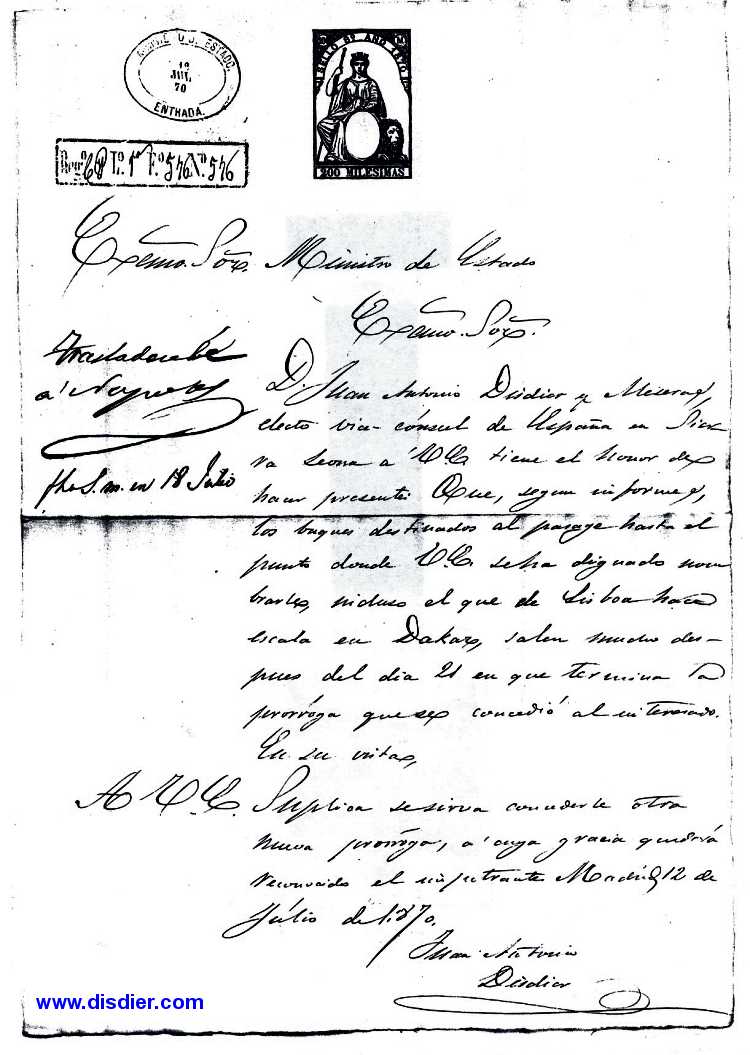 MINIST. D. ESTADO.
12
JUL
70
ENTRADA.
SELLO 9º AÑO 1870
200 MILESIMAS
Lº 1º Fº 576 Nº 576
Excmo. Sor. Ministro de Estado
Excmo. Sor.
Trasladesele
a
fho S. m. en 18 Julio
D. Juan Antonio Disdier y
electo vice-cónsul de España en Sier
ra Leona a V.E. tiene el honor de
hacer presente: Que, segun informes,
los buques destinados al pasage hasta el
punto donde V.E. se ha dignado nom
brarle, incluso el que de Lisboa hace
escala en Dakar, salen mucho des-
pues del dia 21 en que termina la
prorróga que se concedió al interesado.
En su vista,
A V.E. Suplica se sirva concederle otra
nueva prorróga, a cuya gracia quedará
reconocido el impetrante Madrid 12 de
Júlio de 1.870.
Juan Antonio
Disdier
www.disdier.com